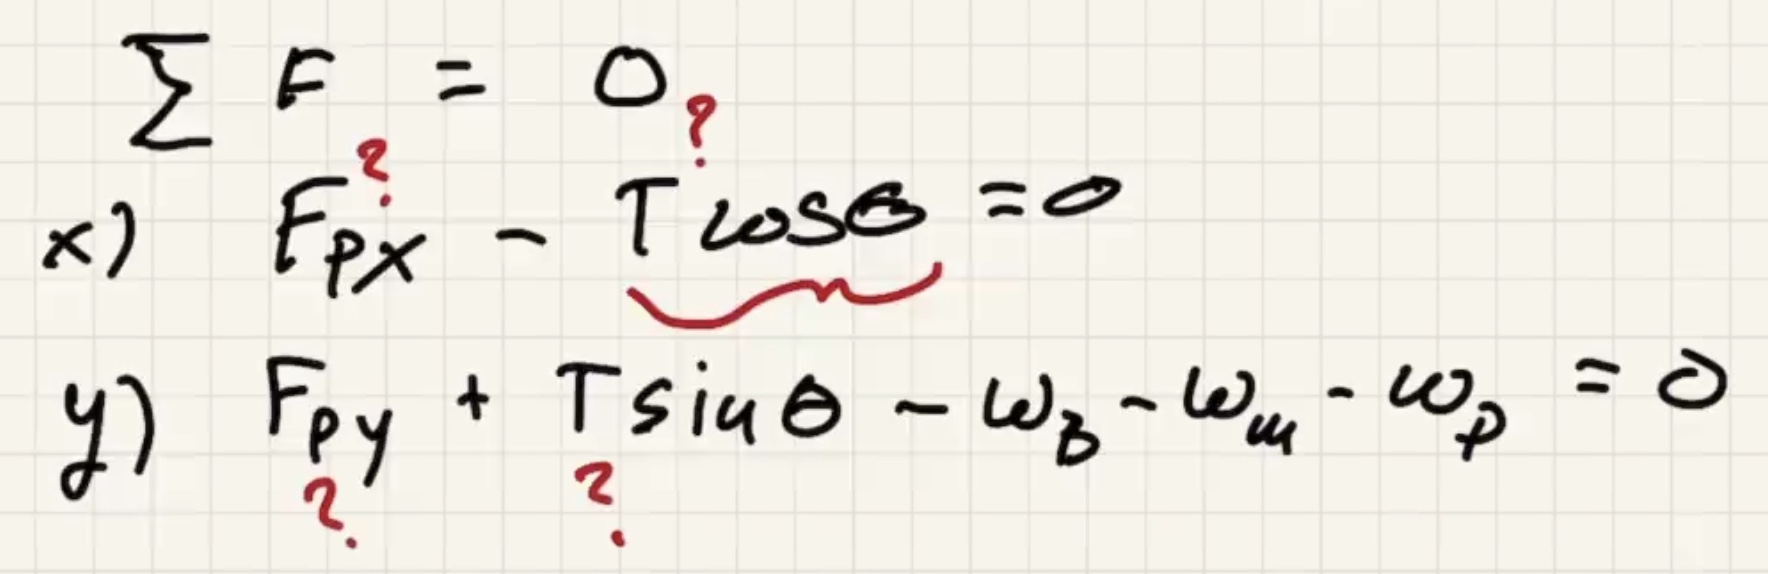 ∑ F = 0
x) F_px - T cosθ = 0
y) F_py + T sinθ - w_B - w_m - w_p = 0
? ?
? ?